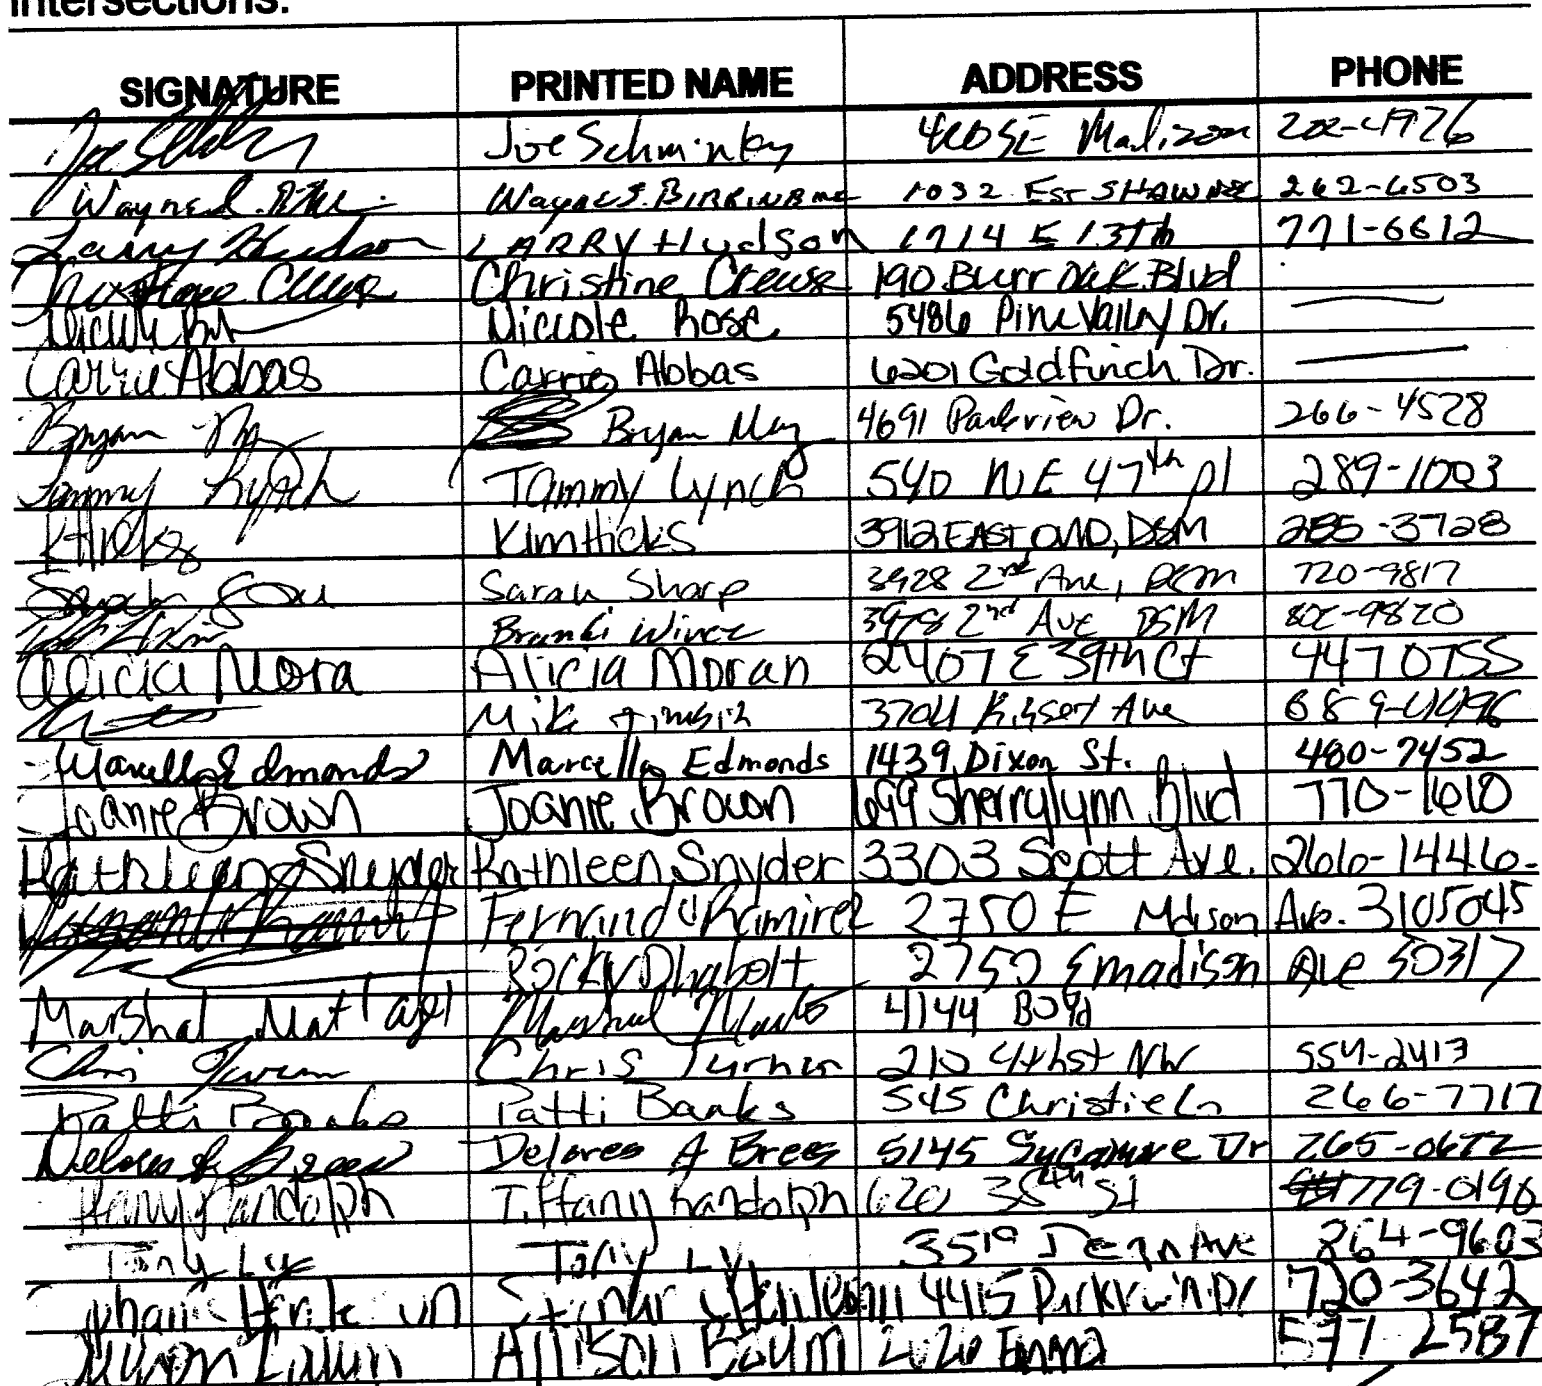 intersections.
SIGNATURE PRINTED NAME ADDRESS PHONE
Joe Schminky Madison 202-4976
Wayne 1032 262-6503
Larry Hudson LARRY Hudson 1714 E 13th 771-6612
Christine Crewse 190 Burr Oak Blvd
Niccole Rose 5486 Pine Valley Dr.
Carrie Abbas Carrie Abbas 6201 Goldfinch Dr.
Bryan May Bryan May 4691 Parkview Dr. 266-4528
Tammy Lynch Tammy Lynch 540 NE 47th pl 289-1003
K Hicks Kim Hicks 3912 EAST DSM 285-3728
Sarah Sharp 3928 2nd Ave, DSM 720-9817
2nd Ave DSM
Alicia Mora Alicia Moran 2407 E 39th Ct 4470755
Mike 3704 Ave
Marcella Edmonds Marcella Edmonds 1439 Dixon St. 480-7452
Joanie Brown Joanie Brown 699 Sherrylynn Blvd 770-1610
Kathleen Snyder Kathleen Snyder 3303 Scott Ave. 266-1446
Ramirez 2750 E Madison Ave. 3105045
Rocky 2750 E madison Ave 50317
Marshal 4144 Boyd
Chris Turner Chris Turner 210 4th st NW 554-2413
Patti Banks Patti Banks 545 Christie Ln 266-7717
Delores A Brees Delores A Brees 5145 Sycamore Dr 265-0672
Tiffany Randolph Tiffany Randolph 620 38th St 779-0196
Tony Ly Tony Ly 3519 Ave 264-9603
4415 Parkview Dr 720-3642
Allison Baum 2620 Emma 577-2587